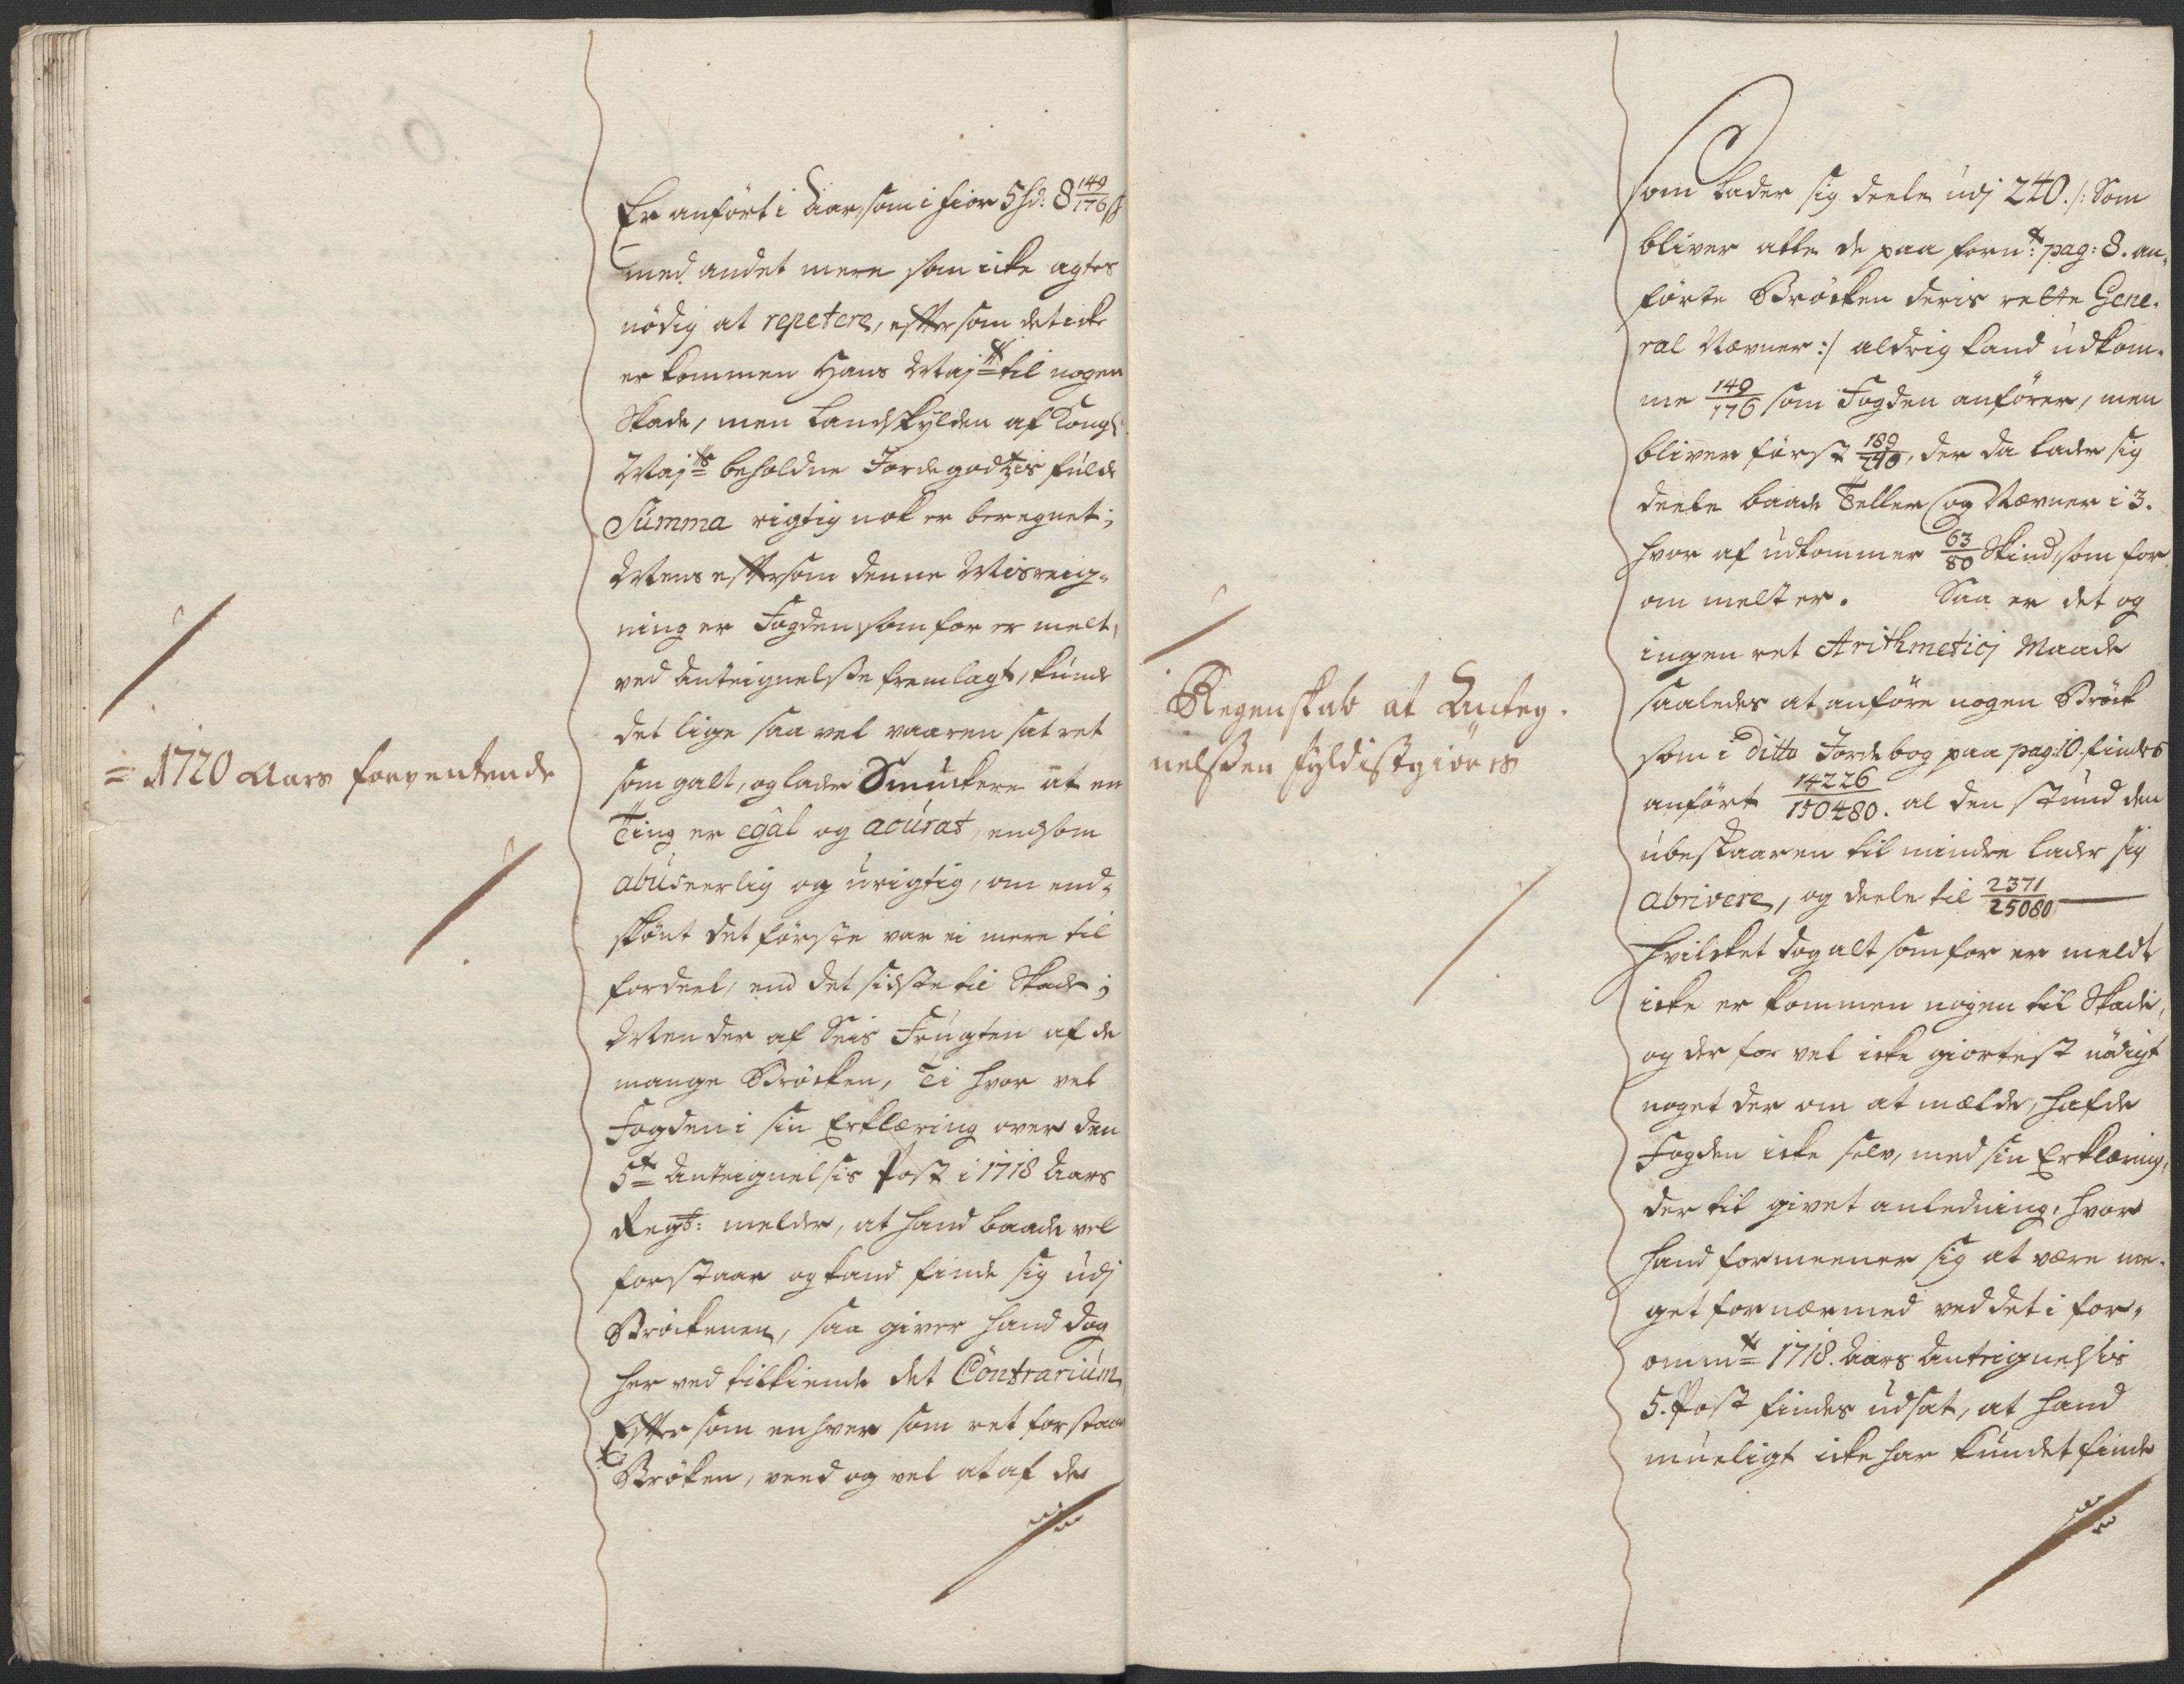 = 1720 Aars forventende
Er anfört i Aar, som i fior 5 hd: 8 149/176 s
med andet mere som icke agtes
nödig at repetere, effter som det icke
er kommen Hans Maj:tt til nogen
Skade, men Landskylden af Kongl:
Maj:ts beholdne Jordegodtzis fulde
Summa rigtig nok er beregnet;
Mens effter som denne Misreig-
ning er Fogden, som for er melt,
ved Anteignelsse fremlagt, kunde
det lige saa vel vaaren sat ret
som galt, og lader Smuckere at en
Ting er egal og acurat, end som
abuseerlig og urigtig, om end-
skönt det förste var ei mere til
fordeel, end det sidste til Skade;
Men der af Seis Frugten af de
mange Bröcken, Ti hvor vel
Fogden i sin Erklæring over den
5te Anteignelsis Post i 1718 Aars
Regsk: melder, at hand baade vel
forstaar og kand finde sig udj
Bröckenen, saa giver hand dog
her ved tilkiende det Contrarium,
Effter som en hver som ret forstaar
Bröken, veed og vel at af de
Regenskab at Anteg-
nelssen fyldistgiöres
som lader sig deele udj 240. /: Som
bliver alle de paa forn:te pag: 8. an-
förte Bröcken deris rette Gene-
ral Nævner :/ aldrig kand udkom-
me 149/176 som Fogden anförer, men
bliver först 189/240, der da lader sig
deele baade Teller og Nævner i 3.
hvor af udkommer 63/80 Skind, som for
om melt er. Saa er det og
ingen ret Arithmeticj Maade
saaledes at anföre nogen Bröck
som i ditto Jordebog paa pag: 10. findes
anfört 14226/150480. al den stund den
ubeskaaren til mindre lader sig
abrivere, og deele til 2371/25080
hvilcket dog alt som for er meldt
icke er kommen nogen til Skade,
og der for vel icke giortest nödigt
noget der om at mælde, hafde
Fogden icke selv, med sin Erklæring,
der til givet anledning, hvor
hand formeener sig at være me-
get fornærmed ved det i for-
ommte 1718. Aars Anteignelsis
5. Post findes udsat, at hand
mueligt icke har kundet finde